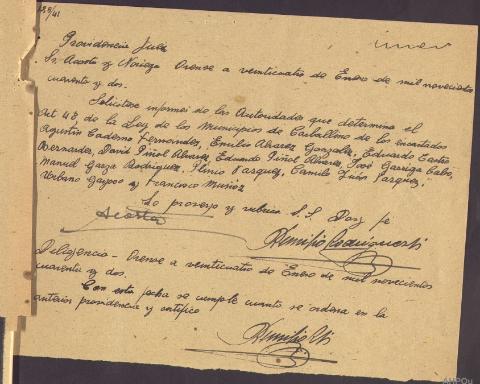 Providencia Juez
Sr. Acosta y Noriega Orense a veinticuatro de Enero de mil novecientos
cuarenta y dos.
Solicitese informes de las Autoridades que determina el
Art 48, de la Ley de los Municipios de Carballino de los encartados
Agustin Cadermo Fernandez, Emilio Alvarez Gonzalez, Eduardo Castro
Bernardez, David Piñol Alvarez, Eduardo Piñol Alvarez, José Garriga Cabo,
Manuel Garza Rodriguez, Plinio Vazquez, Camilo Vazquez,
Urbano y Francisco Muñoz
Lo proveyo y rubrica S.S. Doy fe
Acosta
Diligencia - Orense a veinticuatro de Enero de mil novecientos
cuarenta y dos.
Con esta fecha se cumple cuanto se ordena en la
anterior providencia y certifico